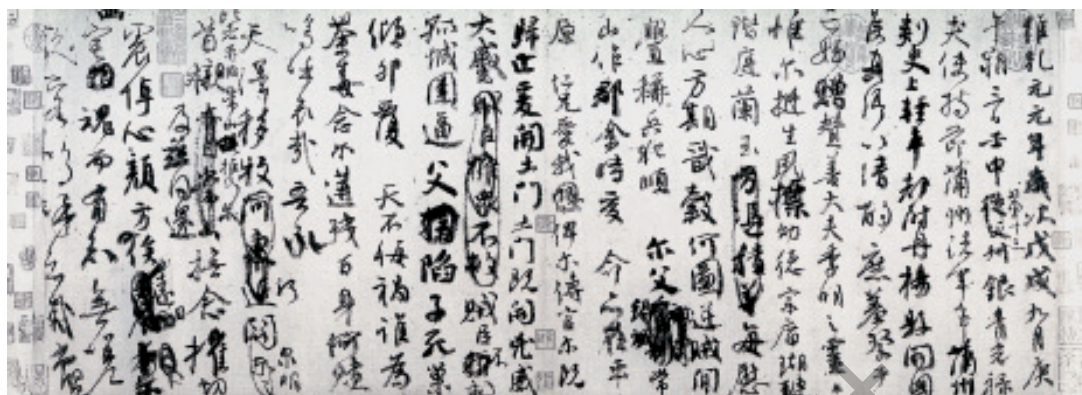 維乾元元年歲次戊戌九月庚
午朔三日壬申第十三叔銀青光祿
夫使持節蒲州諸軍事蒲州
刺史上輕車都尉丹楊縣開國
侯真卿以清酌庶羞祭于
亡姪贈贊善大夫季明之靈
惟爾挺生夙標幼德宗廟瑚璉
階庭蘭玉方憑積善每慰
人心方期戩穀何圖逆賊閒
釁稱兵犯順爾父竭誠常
山作郡余時受命亦在平
原仁兄愛我俾爾傳言爾既
歸止爰開土門土門既開凶威
大蹙賊臣擁眾不救賊臣不救
孤城圍逼父陷子死巢
傾卵覆天不悔禍誰為
荼毒念爾遘殘百身何贖
嗚呼哀哉吾承
天澤移牧河關泉明
首櫬及茲同還撫念摧切
震悼心顏方俟
宅魂而有知無嗟
久客嗚呼哀哉尚饗